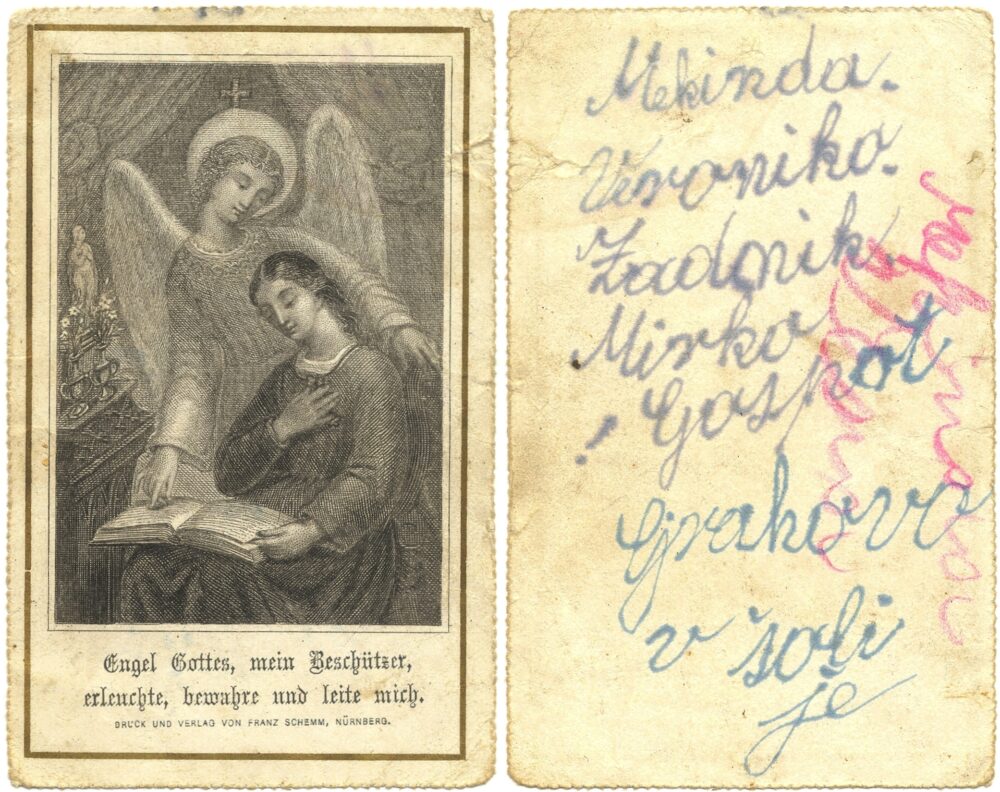 Engel Gottes, mein Beschützer,
erleuchte, bewahre und leite mich.
DRUCK UND VERLAG VON FRANZ SCHEMM, NÜRNBERG.
Mekinda.
Veronika.
Zadnik.
Mirko
Gospot
Grahova
v šoli
je